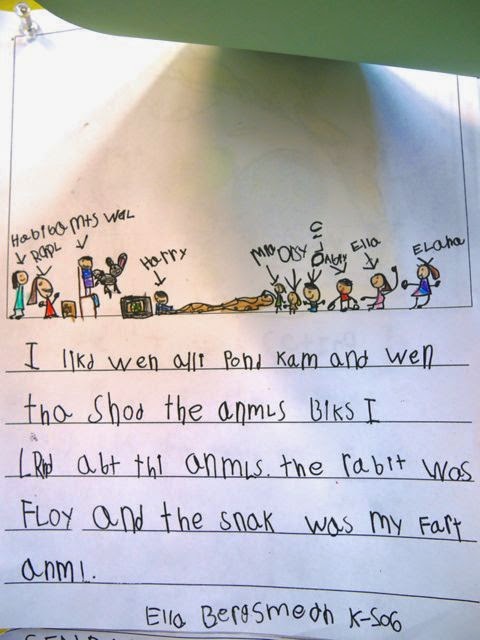 Habiba Mts Wal
RaPL
Harry
Mia Oby
Ella
ELaha
I likd wen alli Pond Kam and wen
tha Shod the anmLs BiKs I
LRnd abt thi anmLs. the rabit was
FLOY and the snak was my Fart
anmL.
Ella Bergsmedh K-506